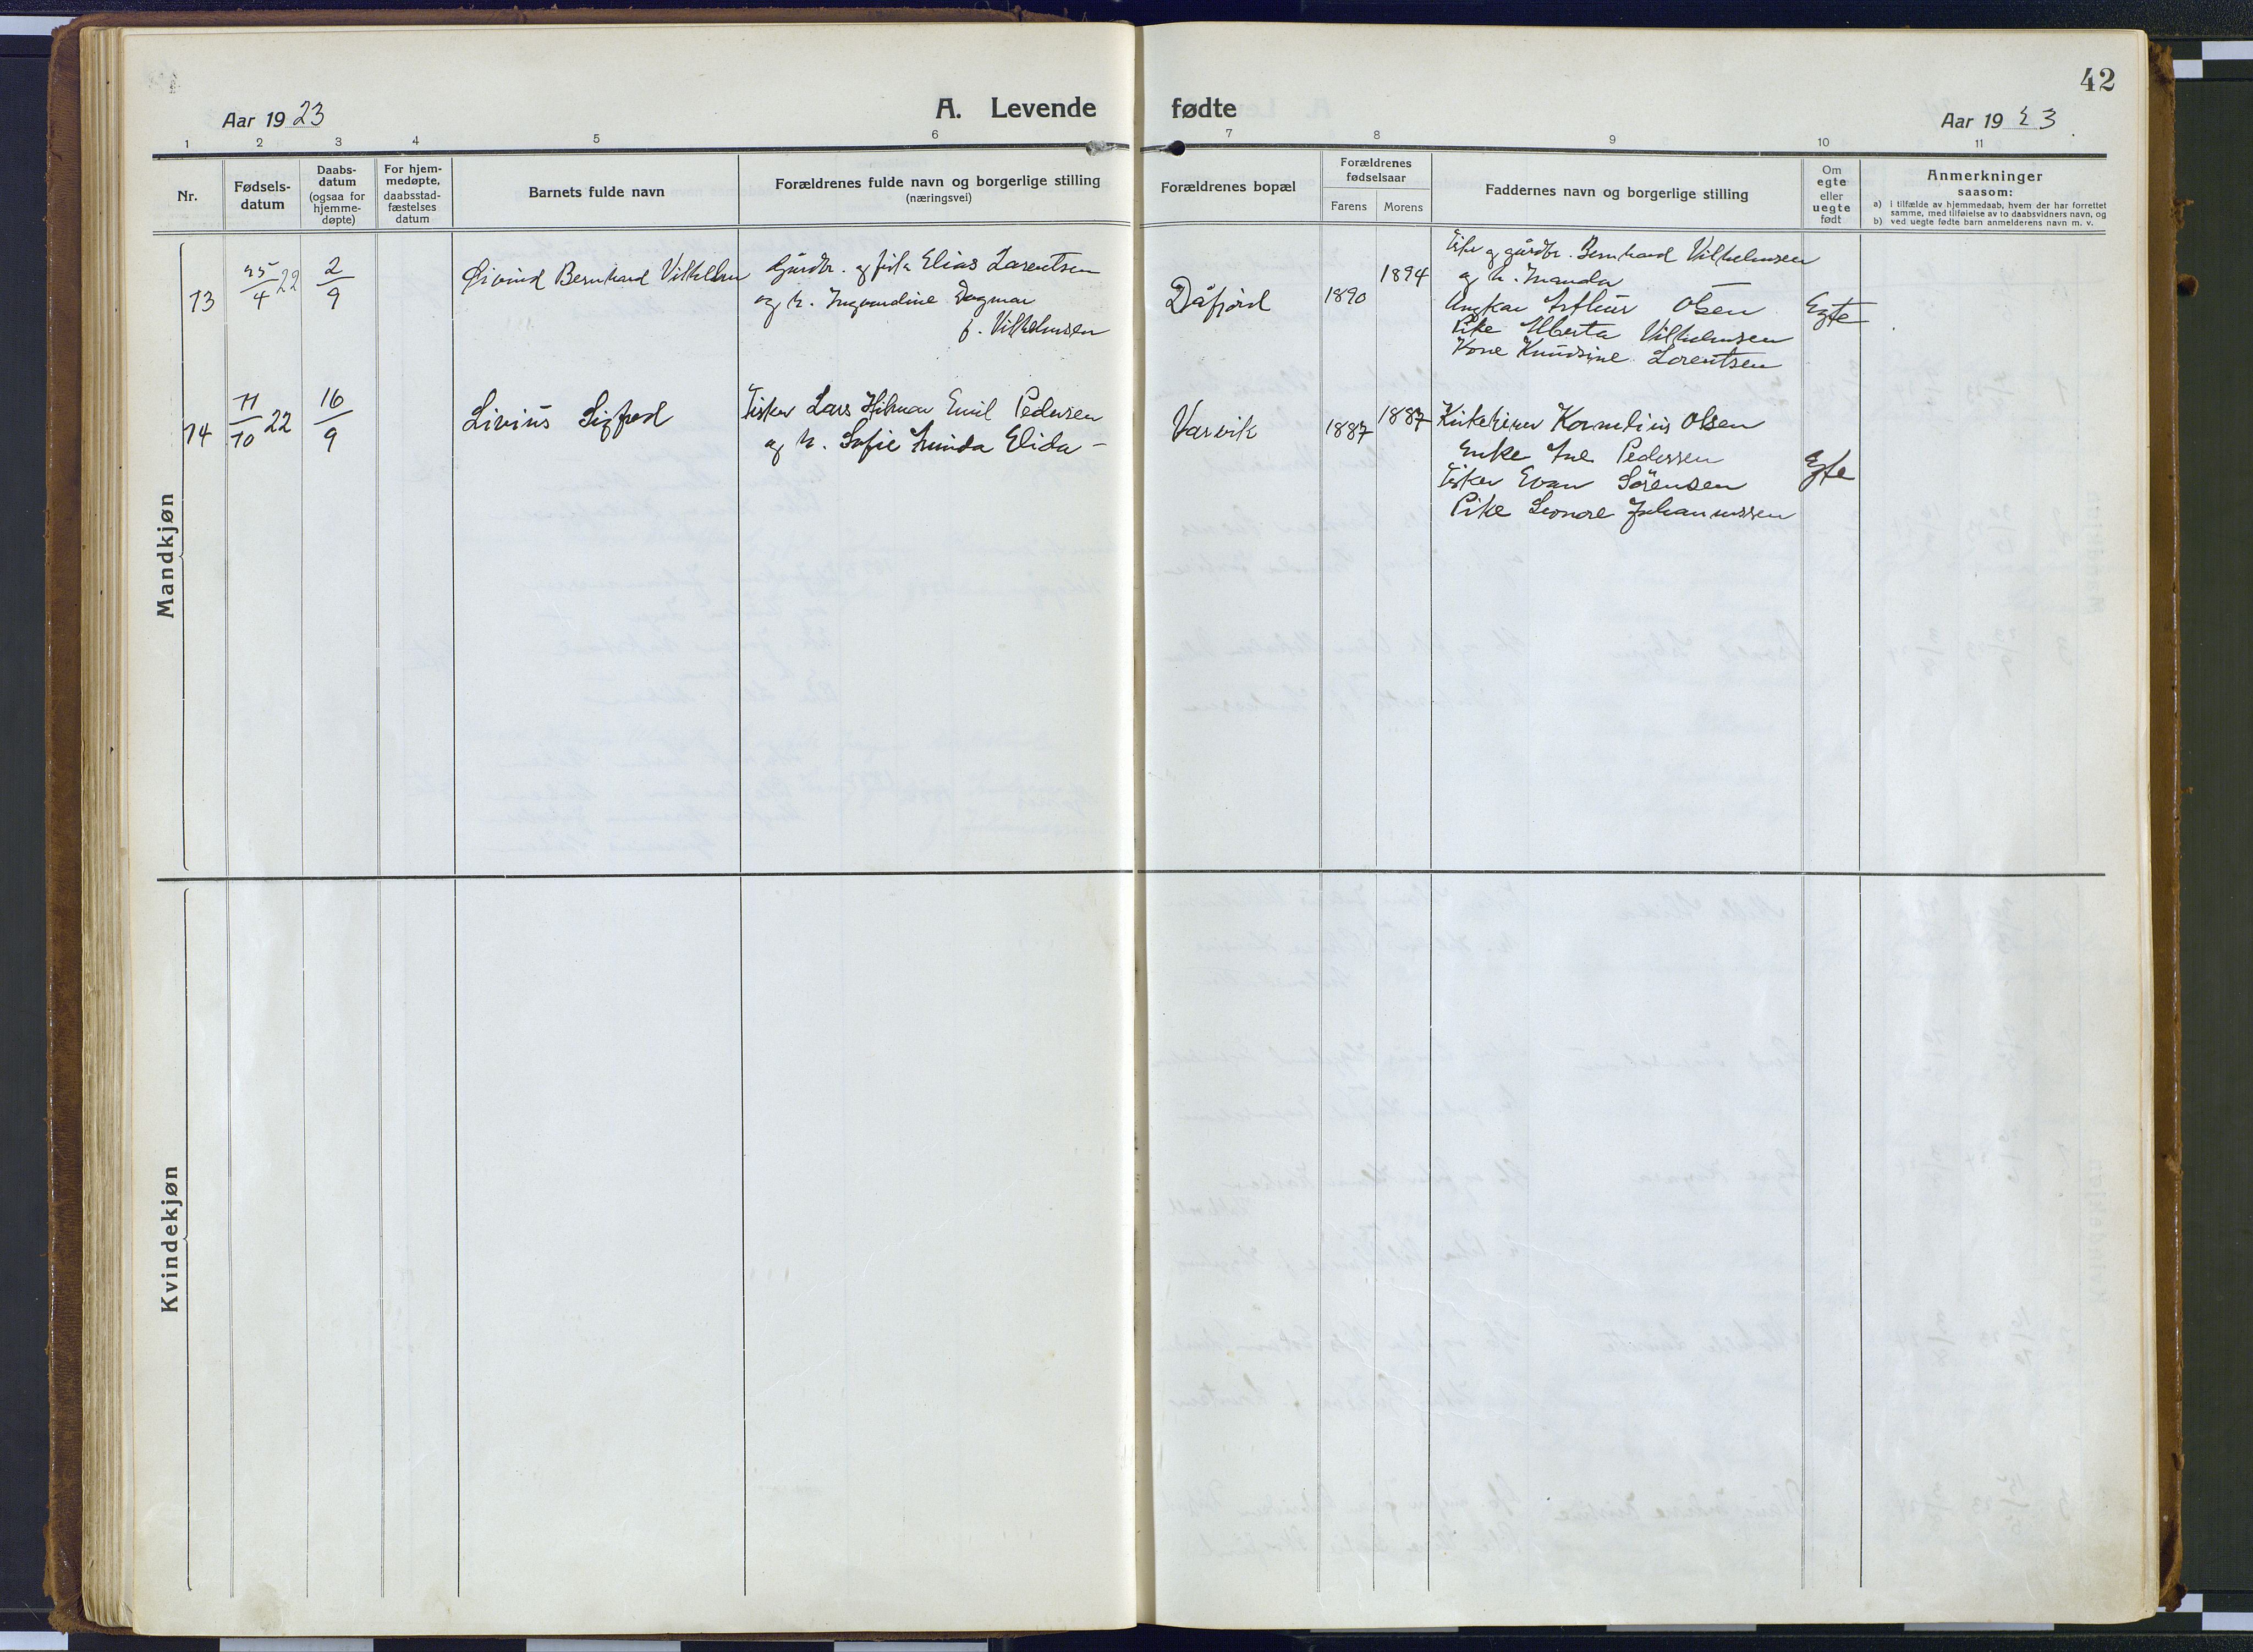 42
Aar 1923
A. Levende fødte
Aar 1923
1 2 3 4 5 6 7 8 9 10 11
Nr.
Fødsels-
datum
Daabs-
datum
(ogsaa for
hjemme-
døpte)
For hjem-
medøpte,
daabsstad-
fæstelses
datum
Barnets fulde navn
Forældrenes fulde navn og borgerlige stilling
(næringsvei)
Forældrenes bopæl
Forældrenes
fødselsaar
Farens Morens
Faddernes navn og borgerlige stilling
Om
egte
eller
uegte
født
Anmerkninger
saasom:
a) i tilfælde av hjemmedaab, hvem der har forrettet
samme, med tilføielse av to daabsvidners navn, og
b) ved uegte fødte barn anmelderens navn m. v.
Mandkjøn
13
25/4 22
2/9
Øivind Bernhard Vilhelm
Gårdbr. og fisk. Elias Larentsen
og h. Ingvardine Dagmar
f. Vilhelmsen
Dåfjord
1890
1894
Fisker og gårdbr. Bernhard Vilhelmsen
og h.
Ungkar Arthur Olsen
Pike Alberta Vilhelmsen
Kone Knudsine Lorentsen
Egte
14
11/10 22
16/9
Livius Sigfred
Fisker Lars Hilmar Emil Pedersen
og h. Sofie Elida -
Vasvik
1887
1887
Kornelius Olsen
Enke Pedersen
Fisker Evan Sörensen
Pike Leonore Johannessen
Egte
Kvindekjøn